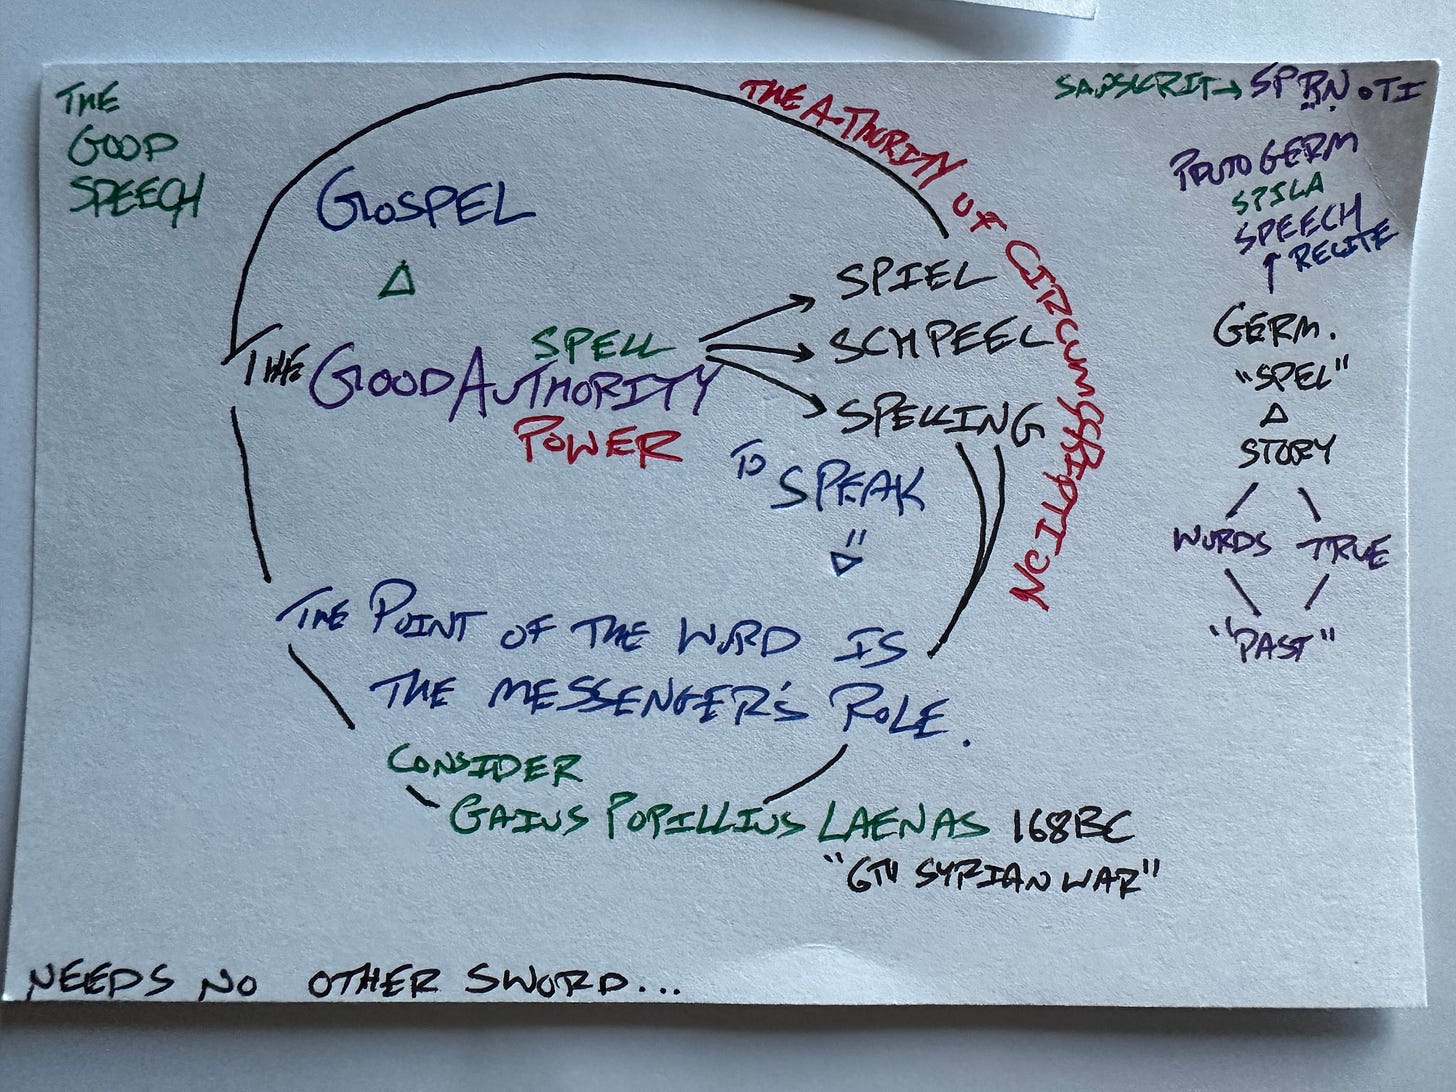 THE
GOOD
SPEECH
GOSPEL
Δ
THE GOOD AUTHORITY
SPELL
POWER
SPIEL
SCHPEEL
SPELLING
TO SPEAK
THE A-THORITY OF CIRCUMSCRIPTION
THE POINT OF THE WORD IS
THE MESSENGER'S ROLE.
CONSIDER
GAIUS POPILLIUS LAENAS 168BC
"6TH SYRIAN WAR"
NEEDS NO OTHER SWORD...
SANSKRIT → SPṚṆOTI
PROTO GERM
SPILA
SPEECH
↑ RECITE
GERM.
"SPEL"
Δ
STORY
WORDS TRUE
"PAST"